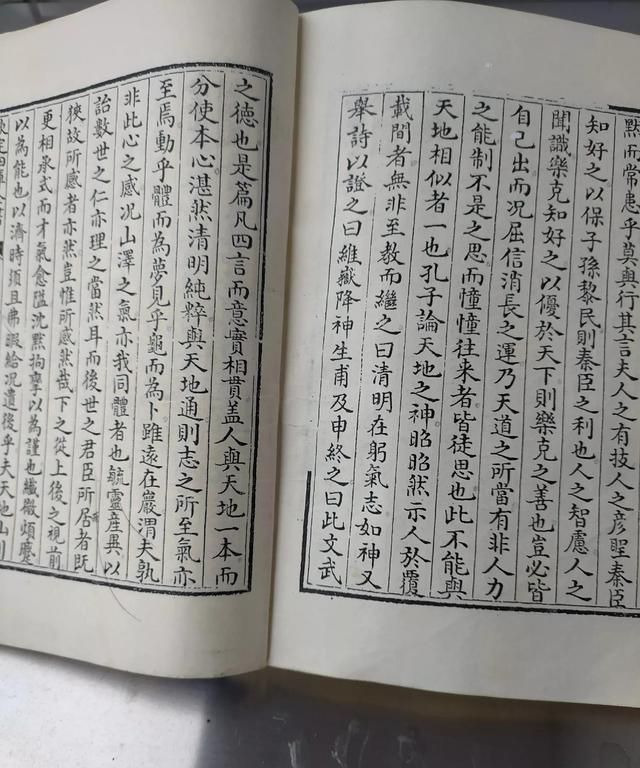 點而常患乎莫與行其言夫人之有技人之彦聖秦臣
知好之以保子孫黎民則秦臣之利也人之智慮人之
聞識樂克知好之以優於天下則樂克之善也豈必皆
自己出而况屈信消長之運乃天道之所當有非人力
之能制不是之思而憧憧往來者皆徒思也此不能與
天地相似者一也孔子論天地之神昭昭然示人於覆
載間者無非至教而繼之曰清明在躬氣志如神又
舉詩以證之曰維嶽降神生甫及申終之曰此文武
之徳也是篇凡四言而意實相貫盖人與天地一本而
分使本心湛然清明純粹與天地通則志之所至氣亦
至焉動乎體而為夢見乎龜而為卜雖逺在巖渭夫孰
非此心之感况山澤之氣亦我同體者也毓靈産異以
詒數世之仁亦理之當然耳而後世之君臣所居者既
狹故所感者亦然豈惟所感然哉下之從上後之視前
更相承式而才氣愈隘沈黙拘攣以為謹也纎微煩䕃
以為能也以濟時須且弗暇給况遺後乎夫天地山川
欽定四庫全書